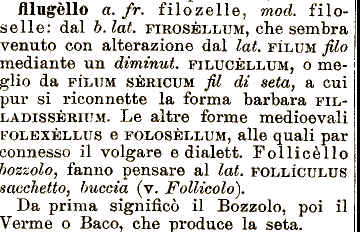 filugèllo a. fr. filozelle, mod. filo-
selle: dal b. lat. FIROSÈLLUM, che sembra
venuto con alterazione dal lat. FÌLUM filo
mediante un diminut. FILUCÈLLUM, o me-
glio da FÌLUM SÈRICUM fil di seta, a cui
pur si riconnette la forma barbara FIL-
LADISSÈRIUM. Le altre forme medioevali
FOLEXÈLLUS e FOLOSÈLLUM, alle quali par
connesso il volgare e dialett. Follicèllo
bozzolo, fanno pensare al lat. FOLLÍCULUS
sacchetto, buccia (v. Follicolo).
Da prima significò il Bozzolo, poi il
Verme o Baco, che produce la seta.